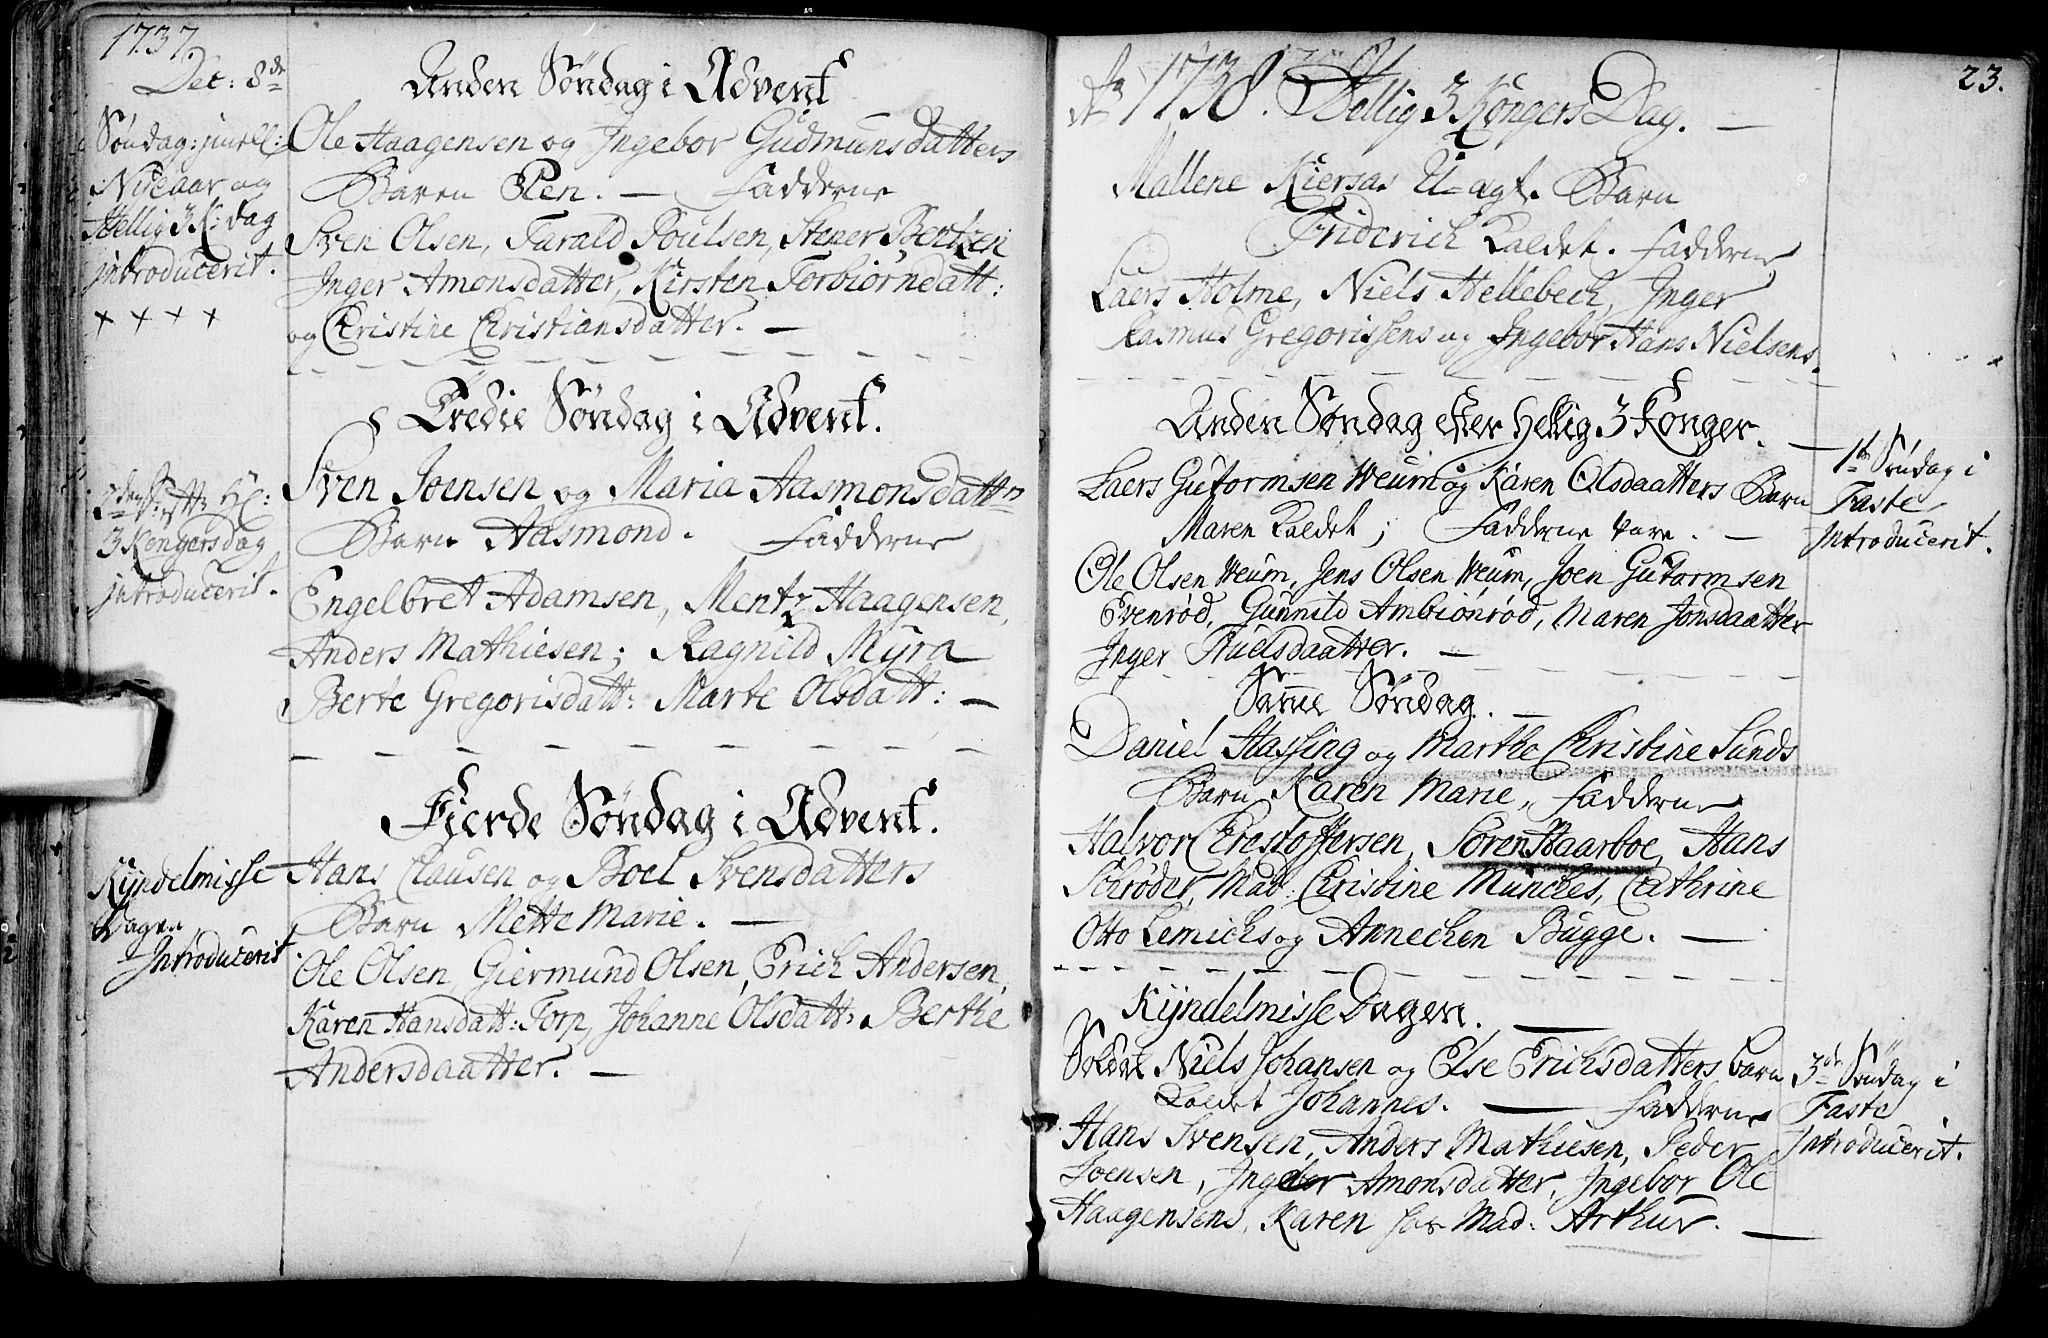 1737.
Dec: 8de
Anden Söndag i Advent
Söndag: imell:
Nyeaar og
Hellig 3 K: dag
introducerit.
++++
Ole Haagensen og Ingebor Gudmunsdatters
Barn Pen. — Fadderne
Sven Olsen, Tarald Poulsen, Stener Bentzen
Inger Amonsdatter, Kirsten Torbiörnsdatt:
og Christine Christiansdatter. —
Tredie Söndag i Advent.
2den S: efter H:
3 Kongersdag
introducerit.
Sven Joensen og Maria Aasmonsdattrs
Barn Aasmond. Fadderne
Engelbret Adamsen, Mentz Haagensen,
Anders Mathiesen; Ragnild Myra
Berte Gregorisdatt: Marte Olsdatt: —
Fierde Söndag i Advent.
Kyndelmisse
Dagen
Introducerit
Hans Clausen og Boel Svensdatters
Barn Mette Marie. —
Ole Olsen, Giermund Olsen, Erich Andersen,
Karen Hansdatt: Torp, Johanne Olsdatt: Berthe
Andersdaatter. —
23.
Ao 1738. Hellig 3 Kongers Dag. —
Mallene Kiersas U-ægt. Barn
Friderich kaldet. Fadderne
Laers Holme, Niels Hellebech, Inger
Rasmus Gregorissens og Ingebor Hans Nielsens.
Anden Söndag efter Hellig 3 Konger. —
1te Söndag i
Faste
Introducerit.
Laers Gutormsen Weum og Karen Olsdaatters Barn
Maren kaldet; Fadderne vare. —
Ole Olsen Weum, Jens Olsen Weum, Joen Gutormsen
Evenröd, Gunnild Ambiönröd, Maren Jonsdaatter
Inger Truelsdaatter. —
Samme Söndag. —
Daniel Hassing og Marthe Christine Sunds
Barn Karen Marie, Fadderne
Halvor Christoffersen, Sören Haarboe, Hans
Schröder, Mad: Christine Munches, Cathrine
Otto Lemichs og Annechen Bugge. —
Kyndelmisse Dagen. —
Soldat Niels Johansen og Else Erichsdatters barn
kaldet Johannes. — Fadderne
3de Söndag i
Faste
Introducerit.
Hans Svensen, Anders Mathiesen, Peder
Joensen, Ingebor Amonsdatter, Ingebor Ole
Haagensens, Karen hos Mad: Arthur. —